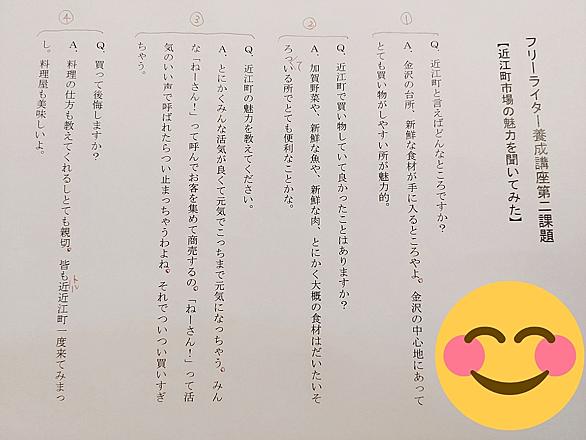 フリーライター養成講座第二課題
【近江町市場の魅力を聞いてみた】
①
Q、近江町と言えばどんなところですか?
A、金沢の台所、新鮮な食材が手に入るところやよ。金沢の中心地にあって
とても買い物がしやすい所が魅力的。
②
Q、近江町で買い物していて良かったことはありますか?
A、加賀野菜や、新鮮な魚や、新鮮な肉、とにかく大概の食材はだいたいそ
ろっている所でとても便利なことかな。
③
Q、近江町の魅力を教えてください。
A、とにかくみんな活気が良くて元気でこっちまで元気になっちゃう。みん
な「ねーさん!」って呼んでお客を集めて商売するの。「ねーさん!」って活
気のいい声で呼ばれたらつい止まっちゃうわよね。それでついつい買いすぎ
ちゃう。
④
Q、買って後悔しますか?
A、料理の仕方も教えてくれるしとても親切。皆も近近江町一度来てみまっ
し。料理屋も美味しいよ。
トル